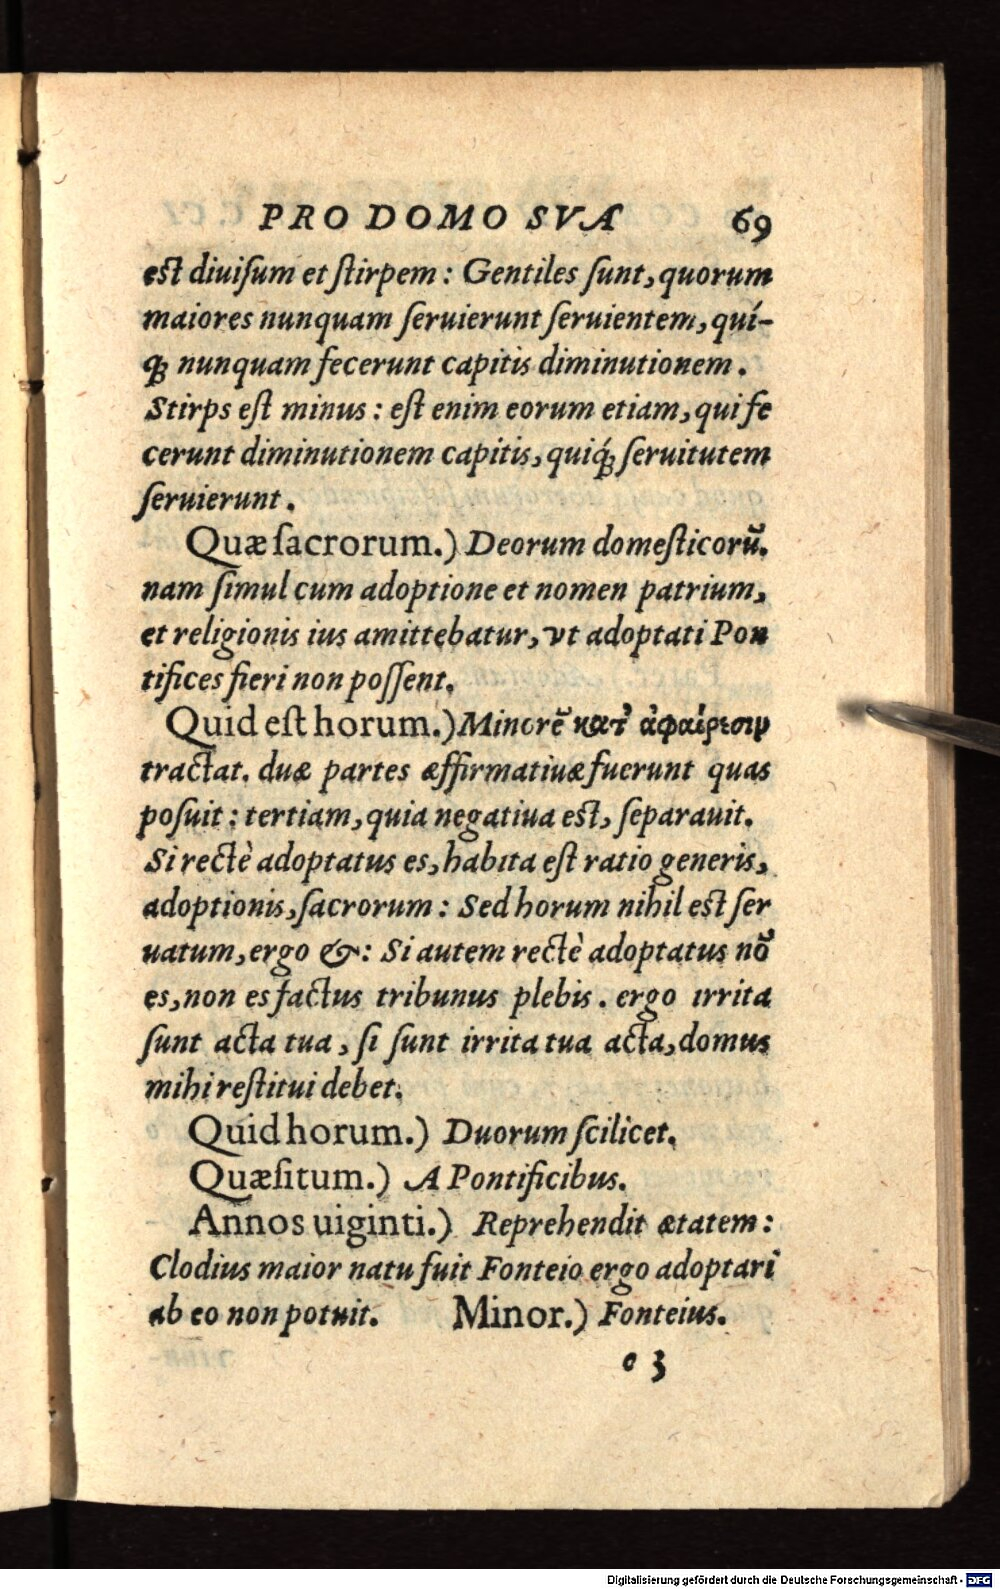 PRO DOMO SVA 69
est diuisum et stirpem: Gentiles sunt, quorum
maiores nunquam seruierunt seruientem, qui-
q; nunquam fecerunt capitis diminutionem.
Stirps est minus: est enim eorum etiam, qui fe
cerunt diminutionem capitis, quiq́; seruitutem
seruierunt.
Quæ sacrorum.) Deorum domesticorũ.
nam simul cum adoptione et nomen patrium,
et religionis ius amittebatur, vt adoptati Pon
tifices fieri non possent.
Quid est horum.) Minorẽ κατ' ἀφαίρεσιν
tractat. duæ partes æffirmatiuæ fuerunt quas
posuit: tertiam, quia negatiua est, separauit.
Si rectè adoptatus es, habita est ratio generis,
adoptionis, sacrorum: Sed horum nihil est ser
uatum, ergo &: Si autem rectè adoptatus nõ
es, non es factus tribunus plebis. ergo irrita
sunt acta tua, si sunt irrita tua acta, domus
mihi restitui debet.
Quid horum.) Duorum scilicet.
Quæsitum.) A Pontificibus.
Annos uiginti.) Reprehendit ætatem:
Clodius maior natu fuit Fonteio ergo adoptari
ab eo non potuit. Minor.) Fonteius.
e 3
Digitalisierung gefördert durch die Deutsche Forschungsgemeinschaft - DFG